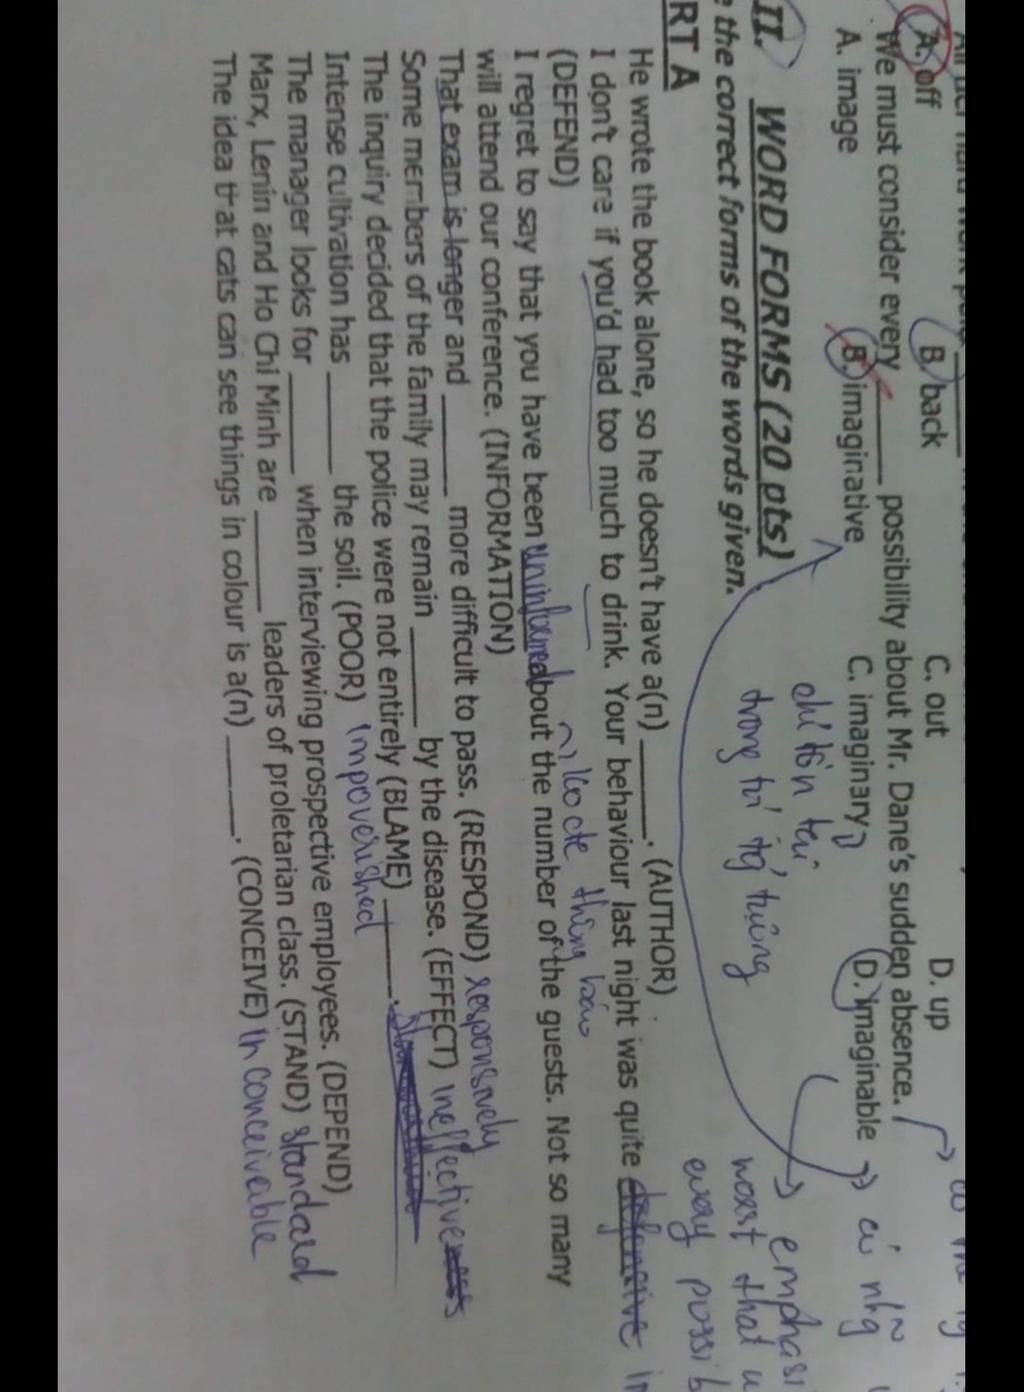 A. off B. back C. out D. up
We must consider every ______ possibility about Mr. Dane's sudden absence.
A. image B. imaginative C. imaginary D. imaginable
chỉ tồn tại
trong trí tg̉ tượng
II. WORD FORMS (20 pts)
the correct forms of the words given.
emphasi
every possib
RT A
He wrote the book alone, so he doesn't have a(n) ______. (AUTHOR)
I don't care if you'd had too much to drink. Your behaviour last night was quite in
(DEFEND)
I regret to say that you have been uninformed about the number of the guests. Not so many
thông báo
will attend our conference. (INFORMATION)
That exam is longer and ______ more difficult to pass. (RESPOND) responsively
Some members of the family may remain ______ by the disease. (EFFECT) ineffective
The inquiry decided that the police were not entirely (BLAME) ______.
Intense cultivation has ______ the soil. (POOR) impoverished
The manager looks for ______ when interviewing prospective employees. (DEPEND)
Marx, Lenin and Ho Chi Minh are ______ leaders of proletarian class. (STAND) standard
The idea that cats can see things in colour is a(n) ______. (CONCEIVE) inconceivable